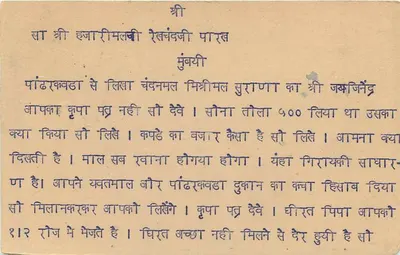 श्री
सा श्री हजारीमलजी रेखचंदजी पारख
मुंबयी
पांढरकवडा से लिखा चंदनमल मिश्रीमल सुराणा का श्री जयजिनेंद्र
आपका कृपा पत्र नही सो देवे । सोना तोला ५०० लिया था उसका
क्या किया सो लिखे । कपडे का बजार कैसा है सो लिखे । आमना क्या
दिखती है । माल सब रवाना होगया होगा । यंहा गिरायकी साधार-
ण है। आपने यवतमाल और पांढरकवडा दुकान का कचा हिसाब दिया
सो मिलानकरकर आपको लिखेंगे । कृपा पत्र देवे । घीरत पिपा आपको
१।२ रोज मे भेजते है । घिरत अच्छा नही मिलने से देर हुयी है सो